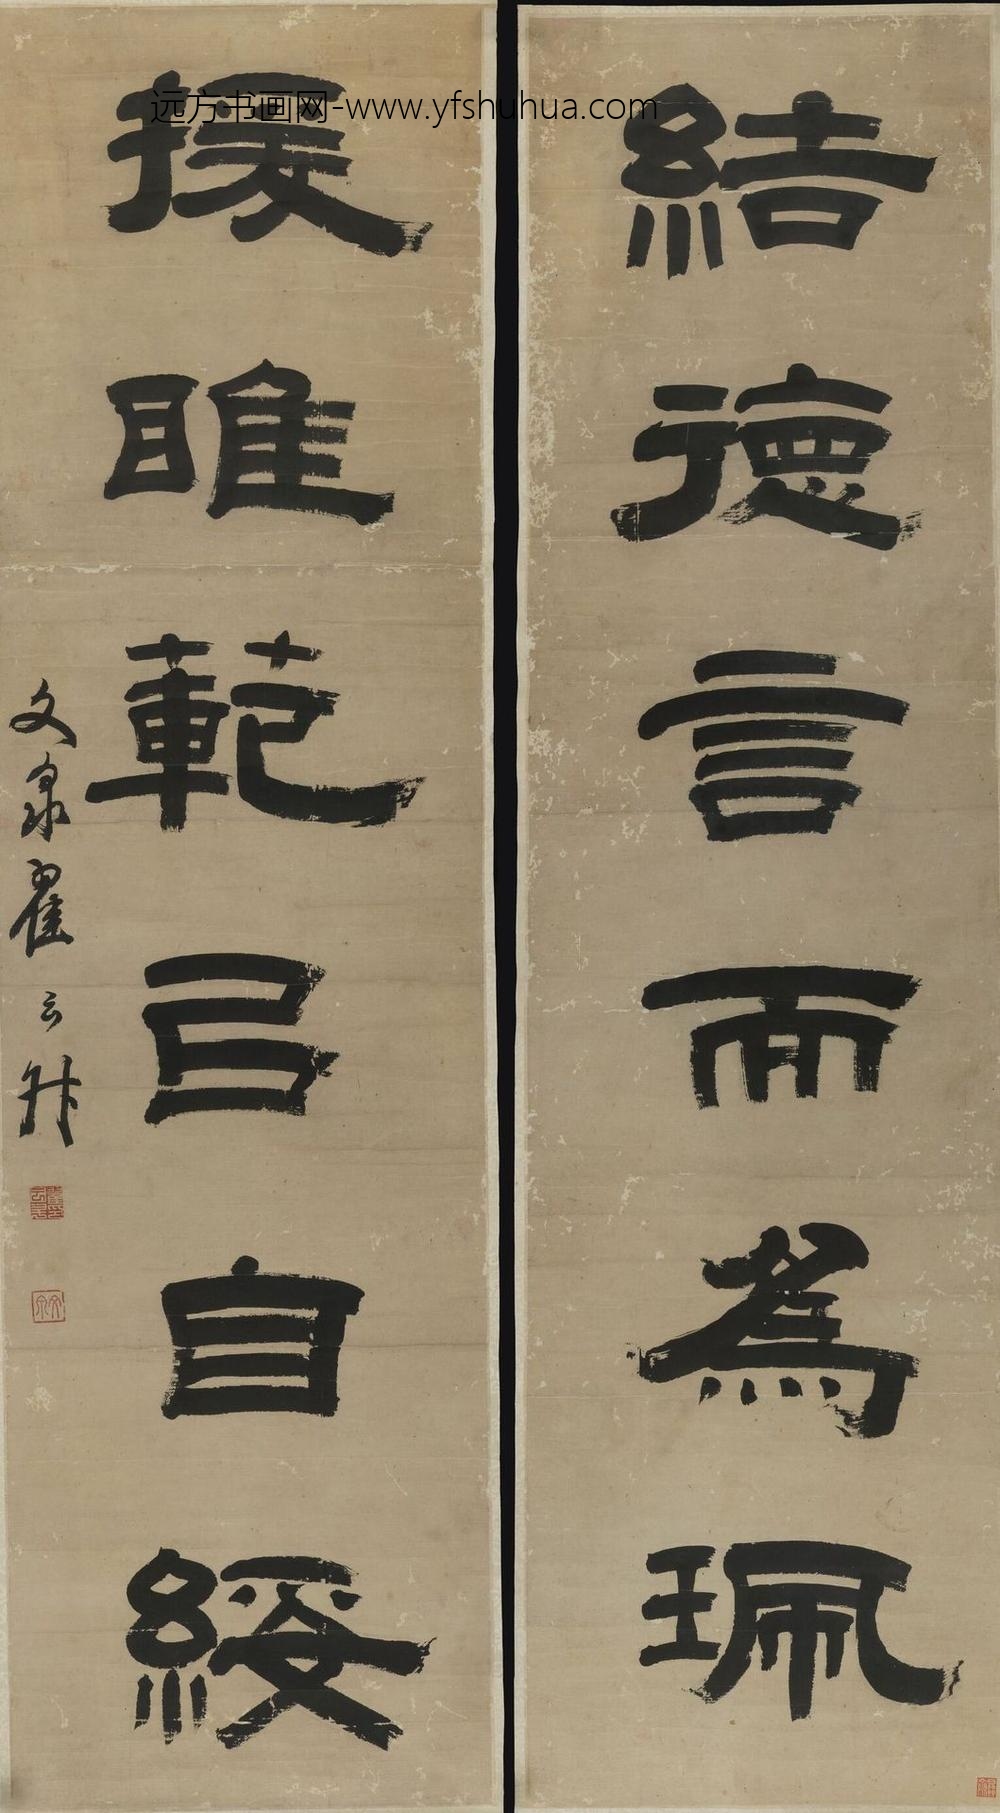 結德言而為珮
援雎範㠯自綏
文泉翟云升
远方书画网-www.yfshuhua.com